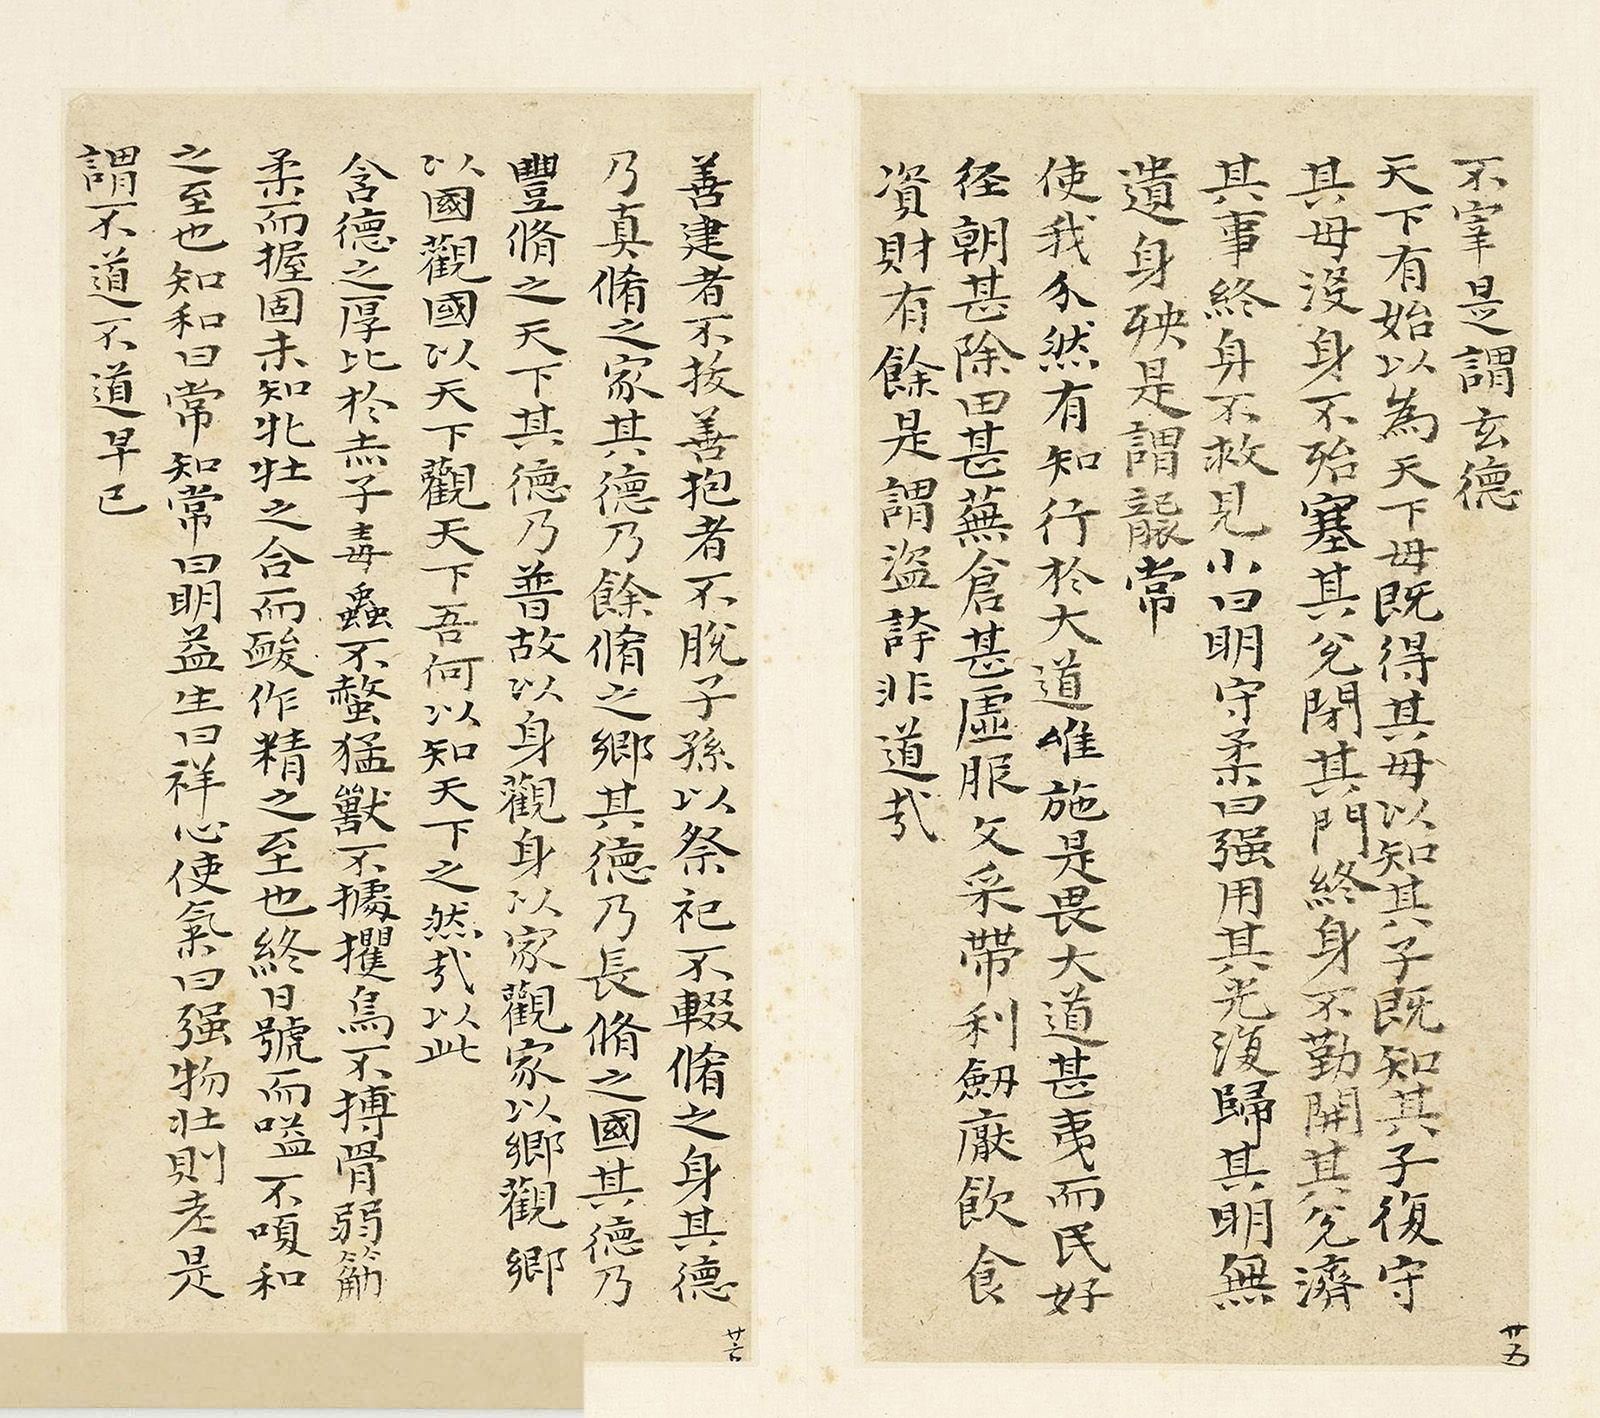 不宰是謂玄德
天下有始以為天下母既得其母以知其子既知其子復守
其母沒身不殆塞其兌閉其門終身不勤開其兌濟
其事終身不救見小曰明守柔曰强用其光復歸其明無
遺身殃是謂襲常
使我介然有知行於大道唯施是畏大道甚夷而民好
径朝甚除田甚蕪倉甚虛服文采帶利劒厭飲食
資財有餘是謂盗誇非道哉
廿五
善建者不拔善抱者不脫子孫以祭祀不輟脩之身其德
乃真脩之家其德乃餘脩之鄉其德乃長脩之國其德乃
豐脩之天下其德乃普故以身觀身以家觀家以鄉觀鄉
以國觀國以天下觀天下吾何以知天下之然哉以此
含德之厚比於赤子毒蟲不螫猛獸不據攫鳥不搏骨弱筋
柔而握固未知牝牡之合而䘒作精之至也終日號而嗌不嗄和
之至也知和曰常知常曰明益生曰祥心使氣曰强物壯則老是
謂不道不道早已
廿六